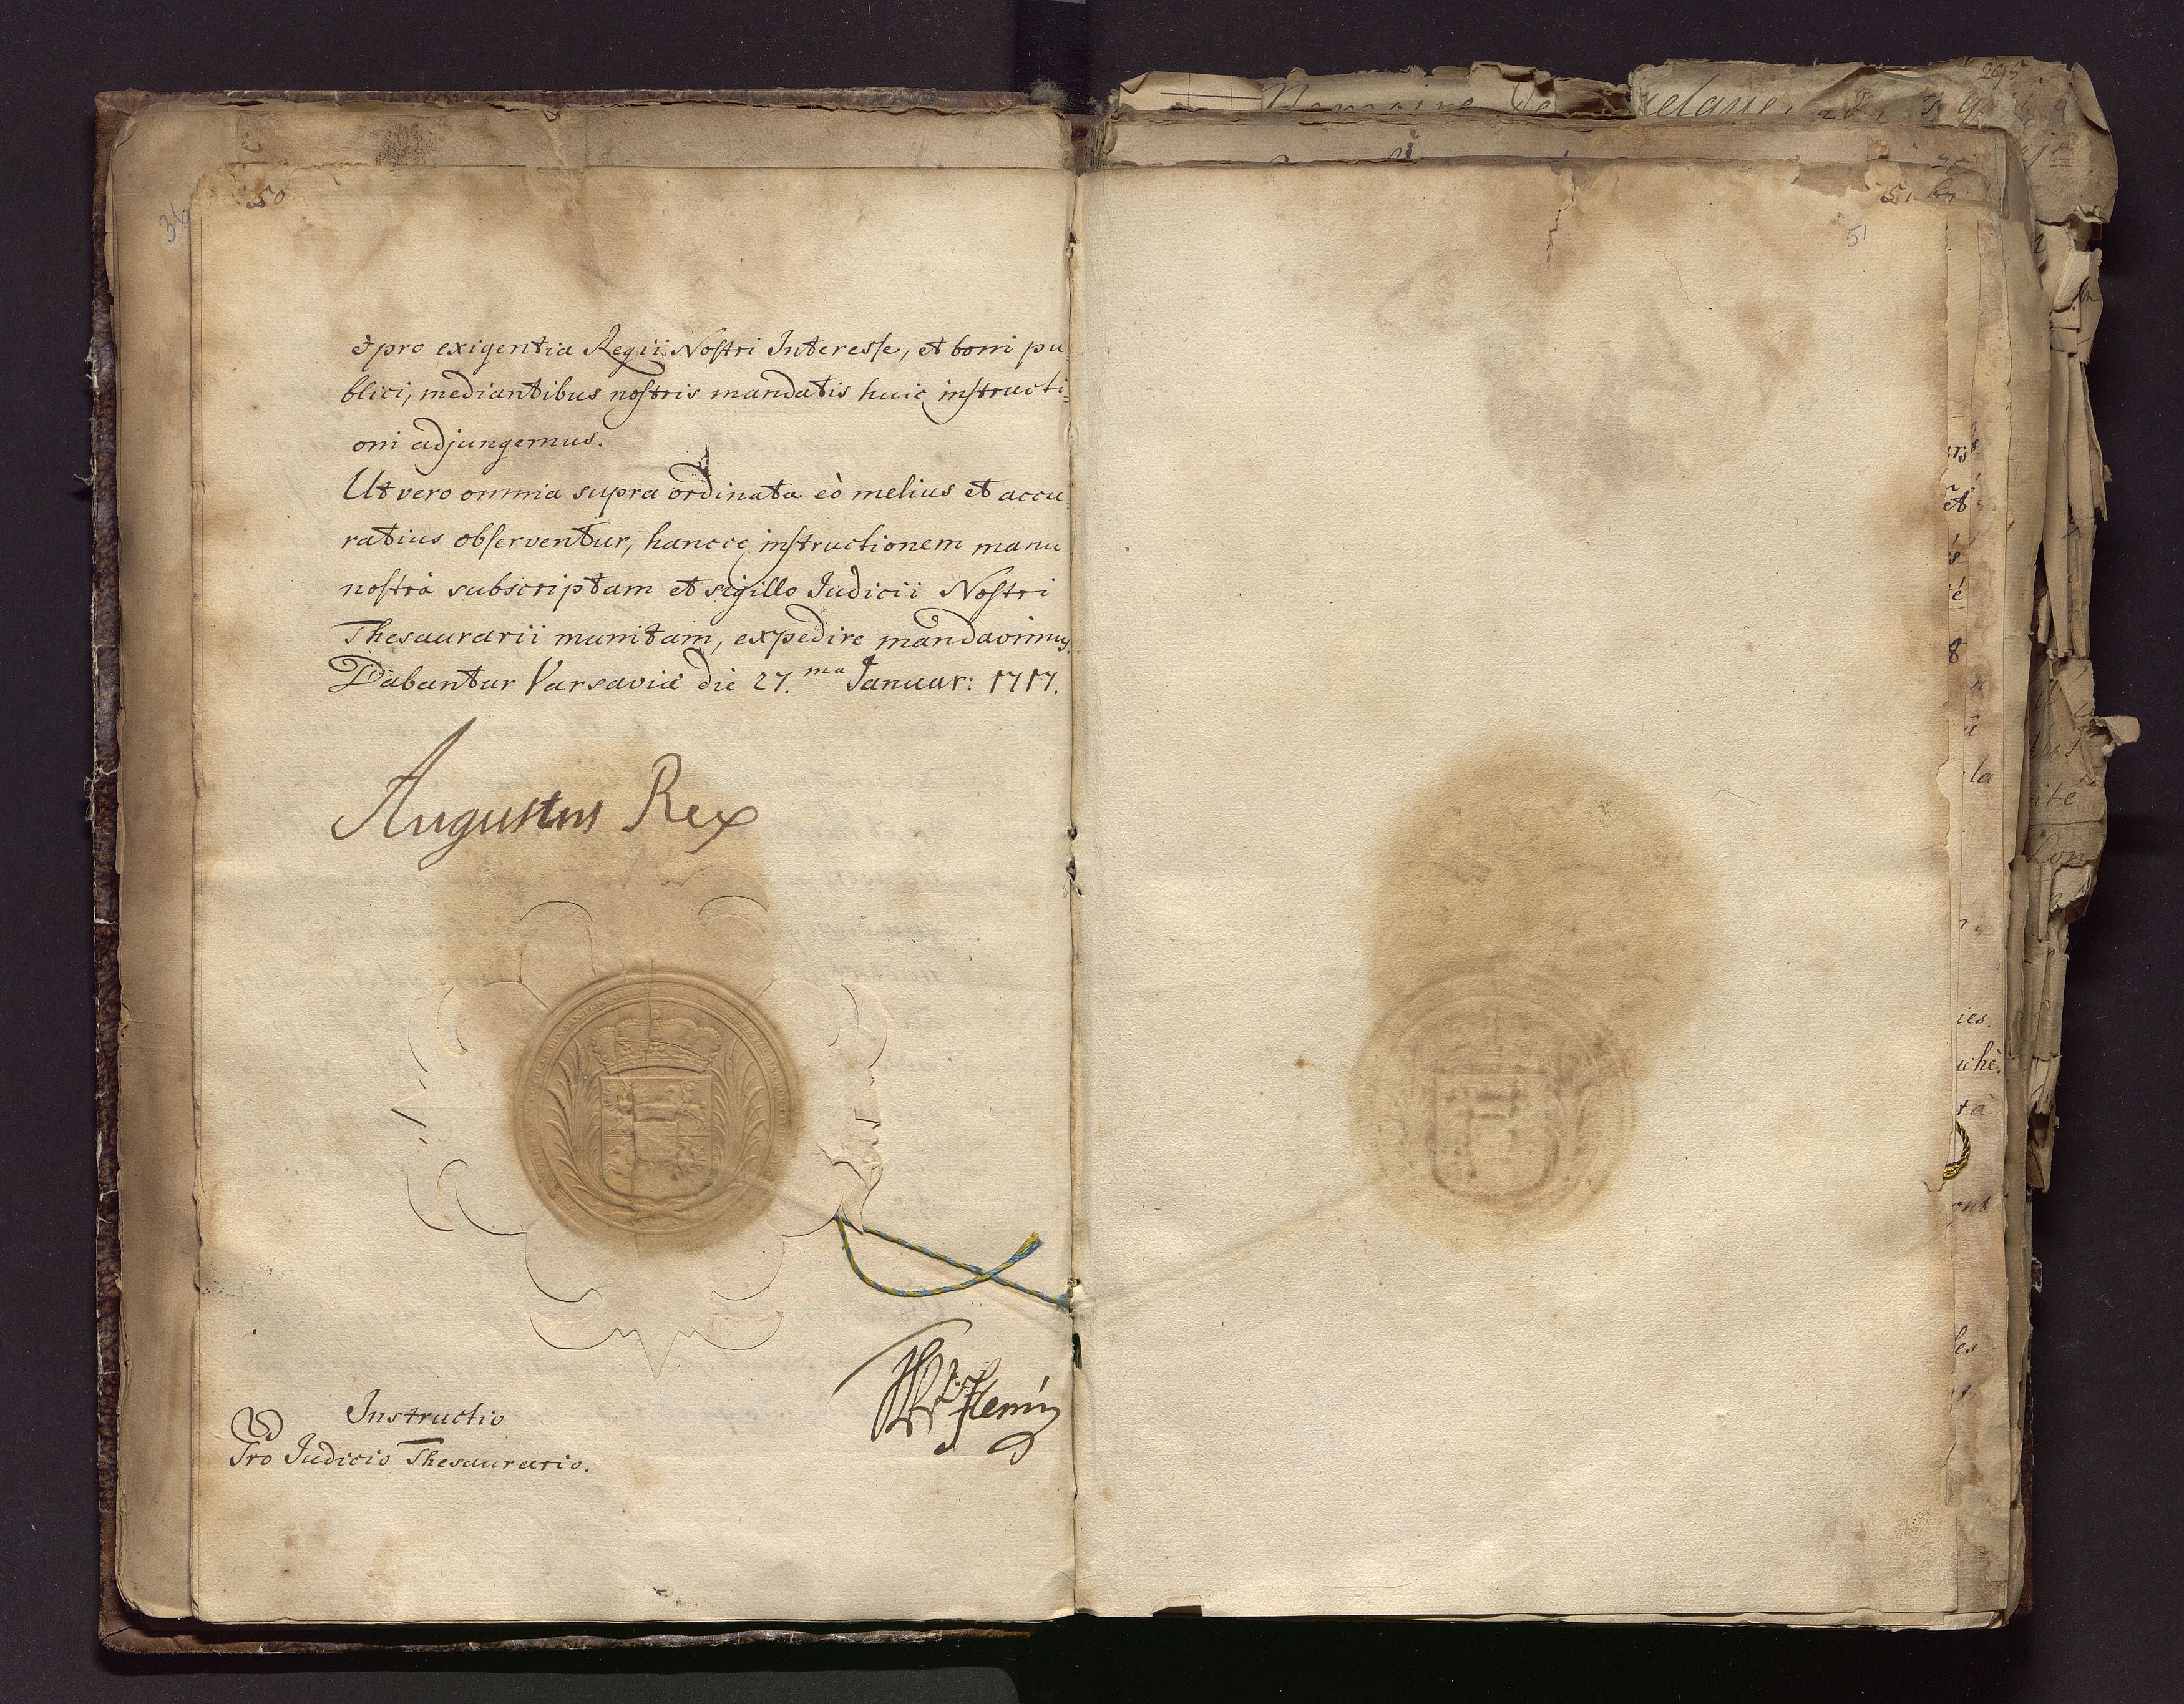 50
36
et pro exigentia Regii Nostri Interesse, et boni pu-
blici, mediantibus nostris mandatis huic instructi-
oni adjungemus.
Ut vero omnia supra ordinata eò melius et accu-
ratius observentur, hancce instructionem manu
nostrâ subscriptam et sigillo Judicii Nostri
Thesaurarii munitam, expedire mandavimus.
Dabantur Varsaviæ die 27.ma Januar: 1717.
Augustus Rex
Instructio
Pro Judicio Thesaurario.
51
51